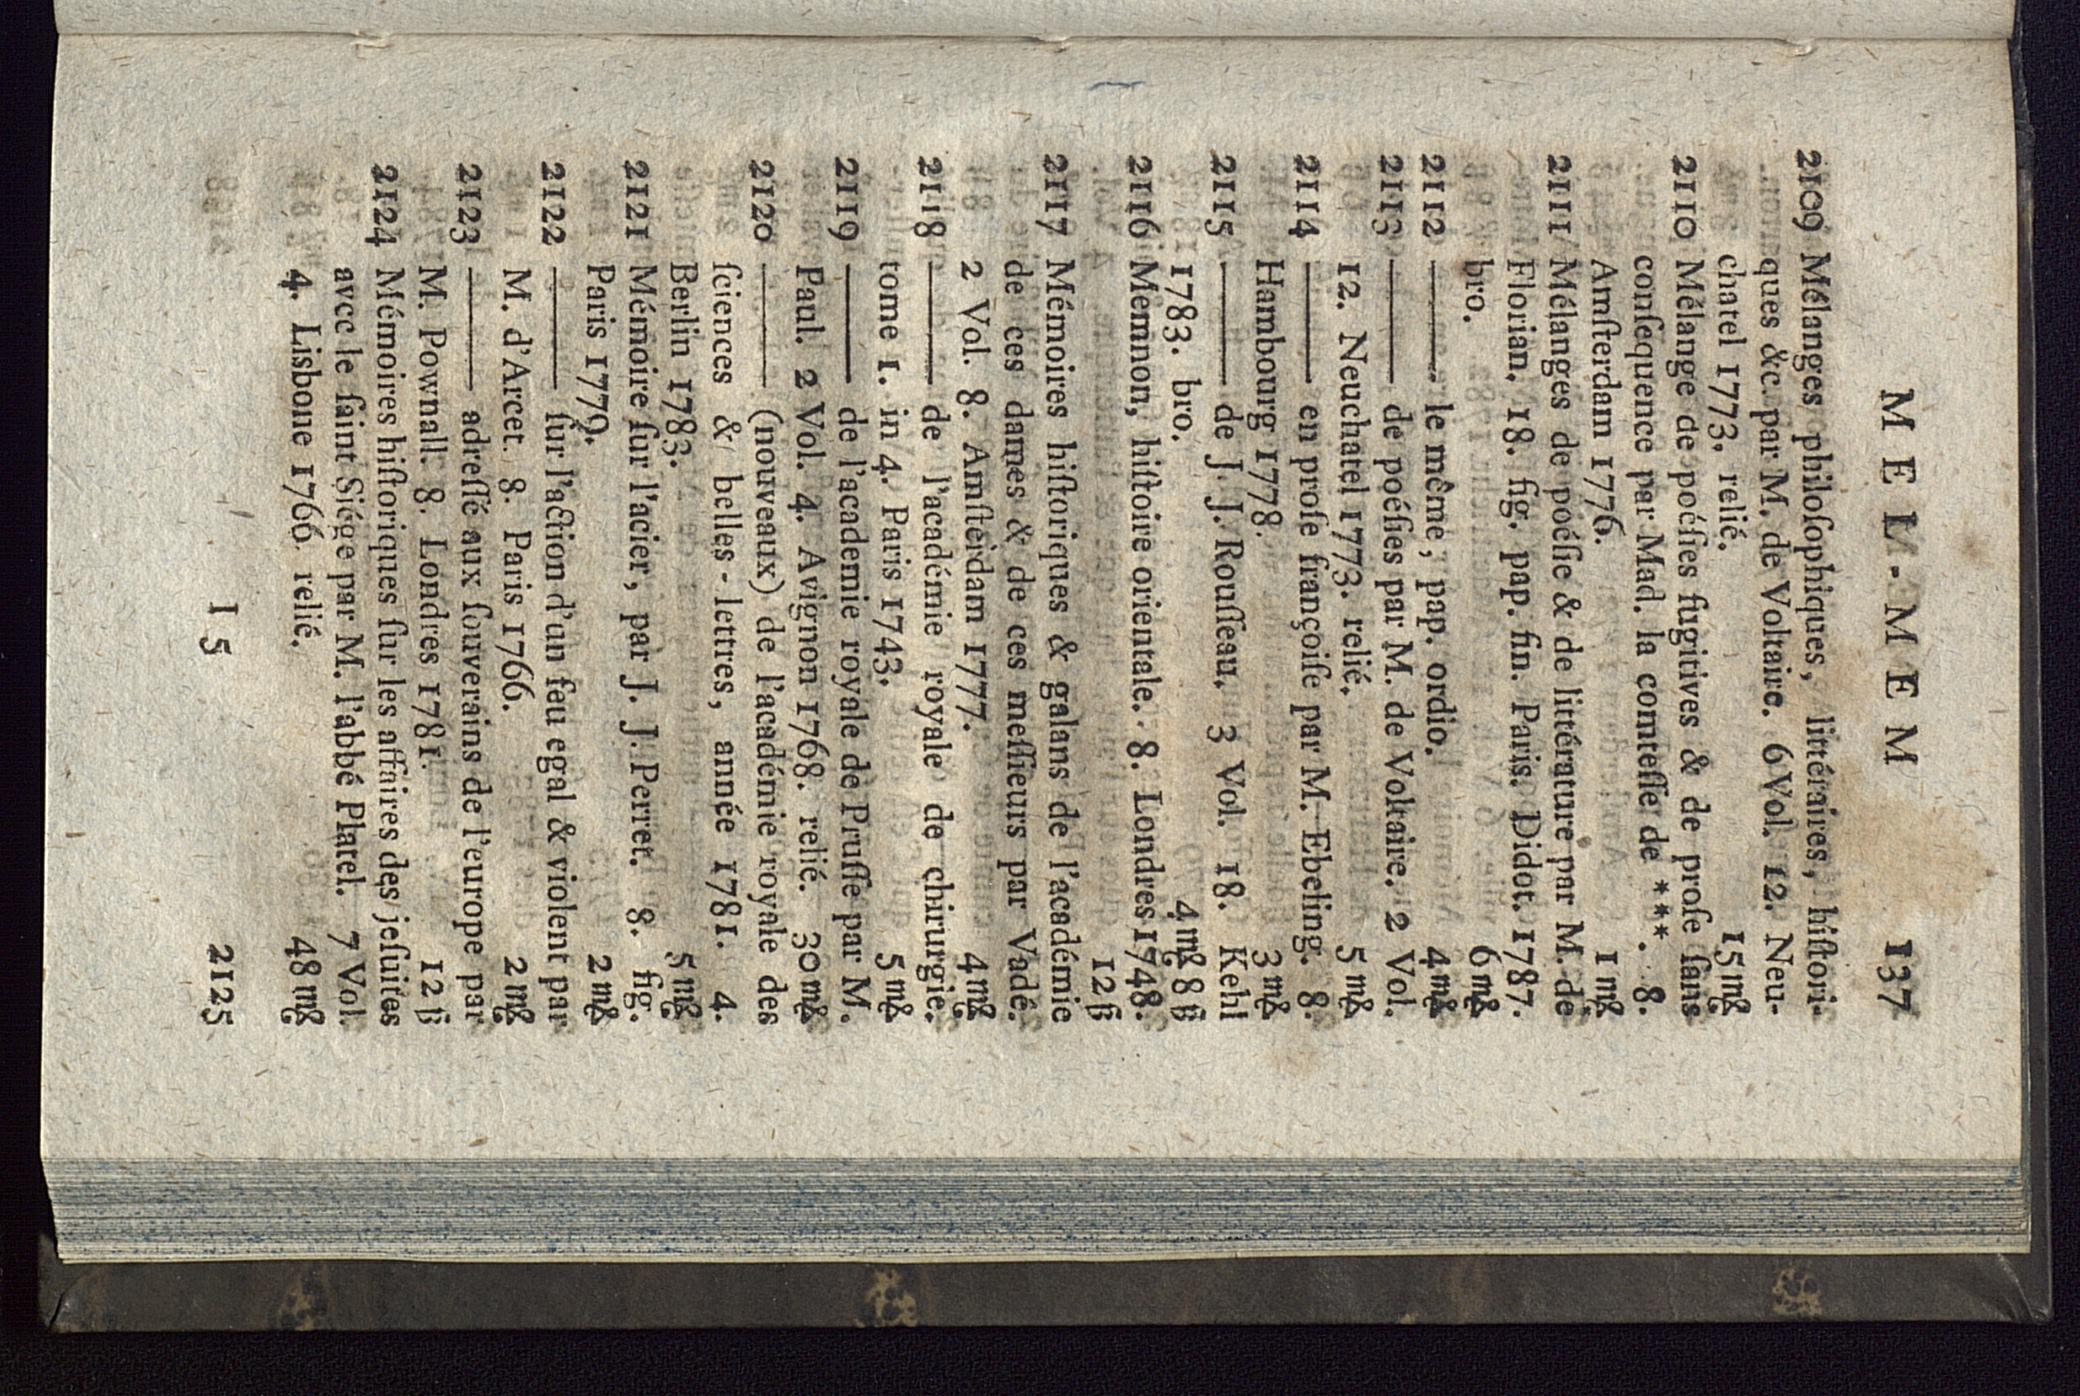 MEL-MEM 137
2109 Mélanges philoſophiques, littéraires, hiſtori-
ques &c. par M. de Voltaire. 6 Vol. 12. Neu-
chatel 1773. relié. 15 m&
2110 Mélange de poéſies fugitives & de proſe ſans
conſequence par Mad. la comteſſe de ***. 8.
Amſterdam 1776. 1 m&
2111 Mélanges de poéſie & de littérature par M. de
Florian. 18. fig. pap. fin. Paris. Didot. 1787.
bro. 6 m&
2112 ——— le même, pap. ordio. 4 m&
2113 ——— de poéſies par M. de Voltaire. 2 Vol.
12. Neuchatel 1773. relié. 5 m&
2114 ——— en proſe françoiſe par M. Ebeling. 8.
Hambourg 1778. 3 m&
2115 ——— de J. J. Rouſſeau. 3 Vol. 18. Kehl
1783. bro. 4 m& 8 ß
2116 Memnon, hiſtoire orientale. 8. Londres 1748.
12 ß
2117 Mémoires hiſtoriques & galans de l'académie
de ces dames & de ces meſſieurs par Vadé.
2 Vol. 8. Amſterdam 1777. 4 m&
2118 ——— de l'académie royale de chirurgie.
tome 1. in 4. Paris 1743. 5 m&
2119 ——— de l'academie royale de Pruſſe par M.
Paul. 2 Vol. 4. Avignon 1768. relié. 30 m&
2120 ——— (nouveaux) de l'académie royale des
ſciences & belles-lettres, année 1781. 4.
Berlin 1783. 5 m&
2121 Mémoire ſur l'acier, par J. J. Perret. 8. fig.
Paris 1779. 2 m&
2122 ——— ſur l'action d'un feu egal & violent par
M. d'Arcet. 8. Paris 1766. 2 m&
2123 ——— adreſſé aux ſouverains de l'europe par
M. Pownall. 8. Londres 1781. 12 ß
2124 Mémoires hiſtoriques ſur les affaires des jeſuites
avec le ſaint Siége par M. l'abbé Platel. 7 Vol.
4. Lisbone 1766. relié. 48 m&
I 5 2125